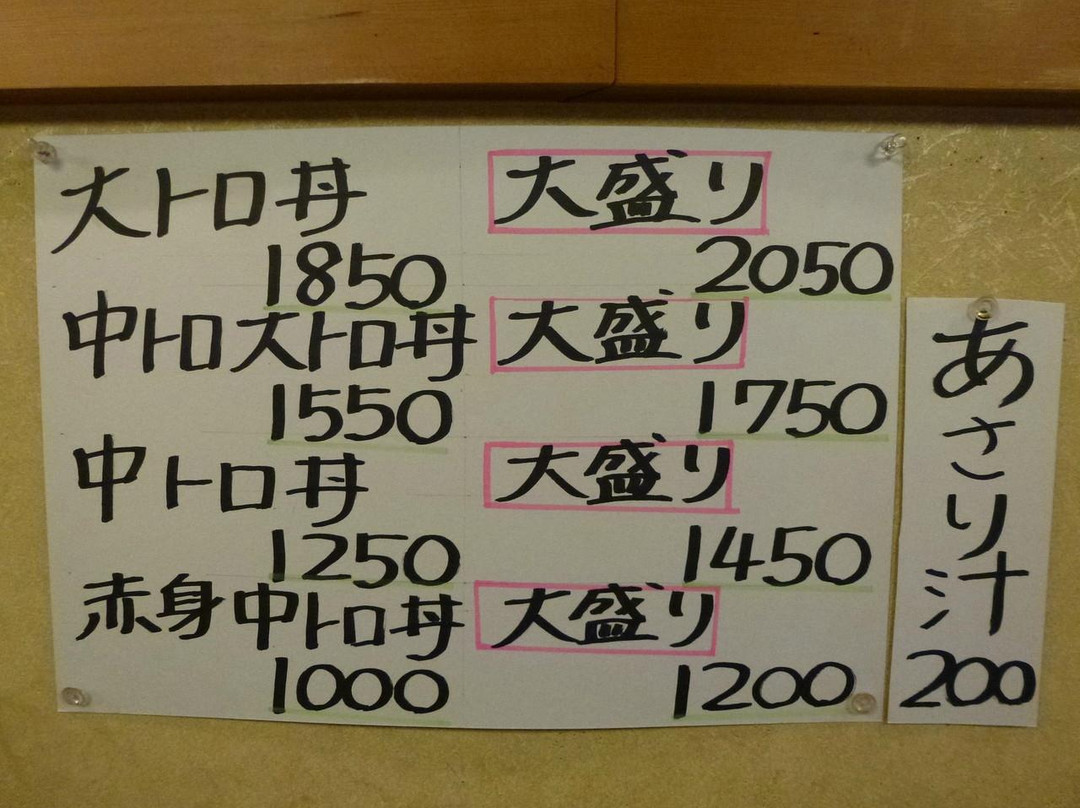 大トロ丼 大盛り
1850 2050
中トロ大トロ丼 大盛り
1550 1750
中トロ丼 大盛り
1250 1450
赤身中トロ丼 大盛り
1000 1200
あさり汁
200